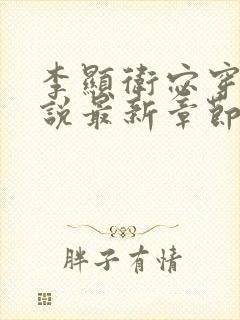 李顯衛宓穿
說最新章節
胖子有情